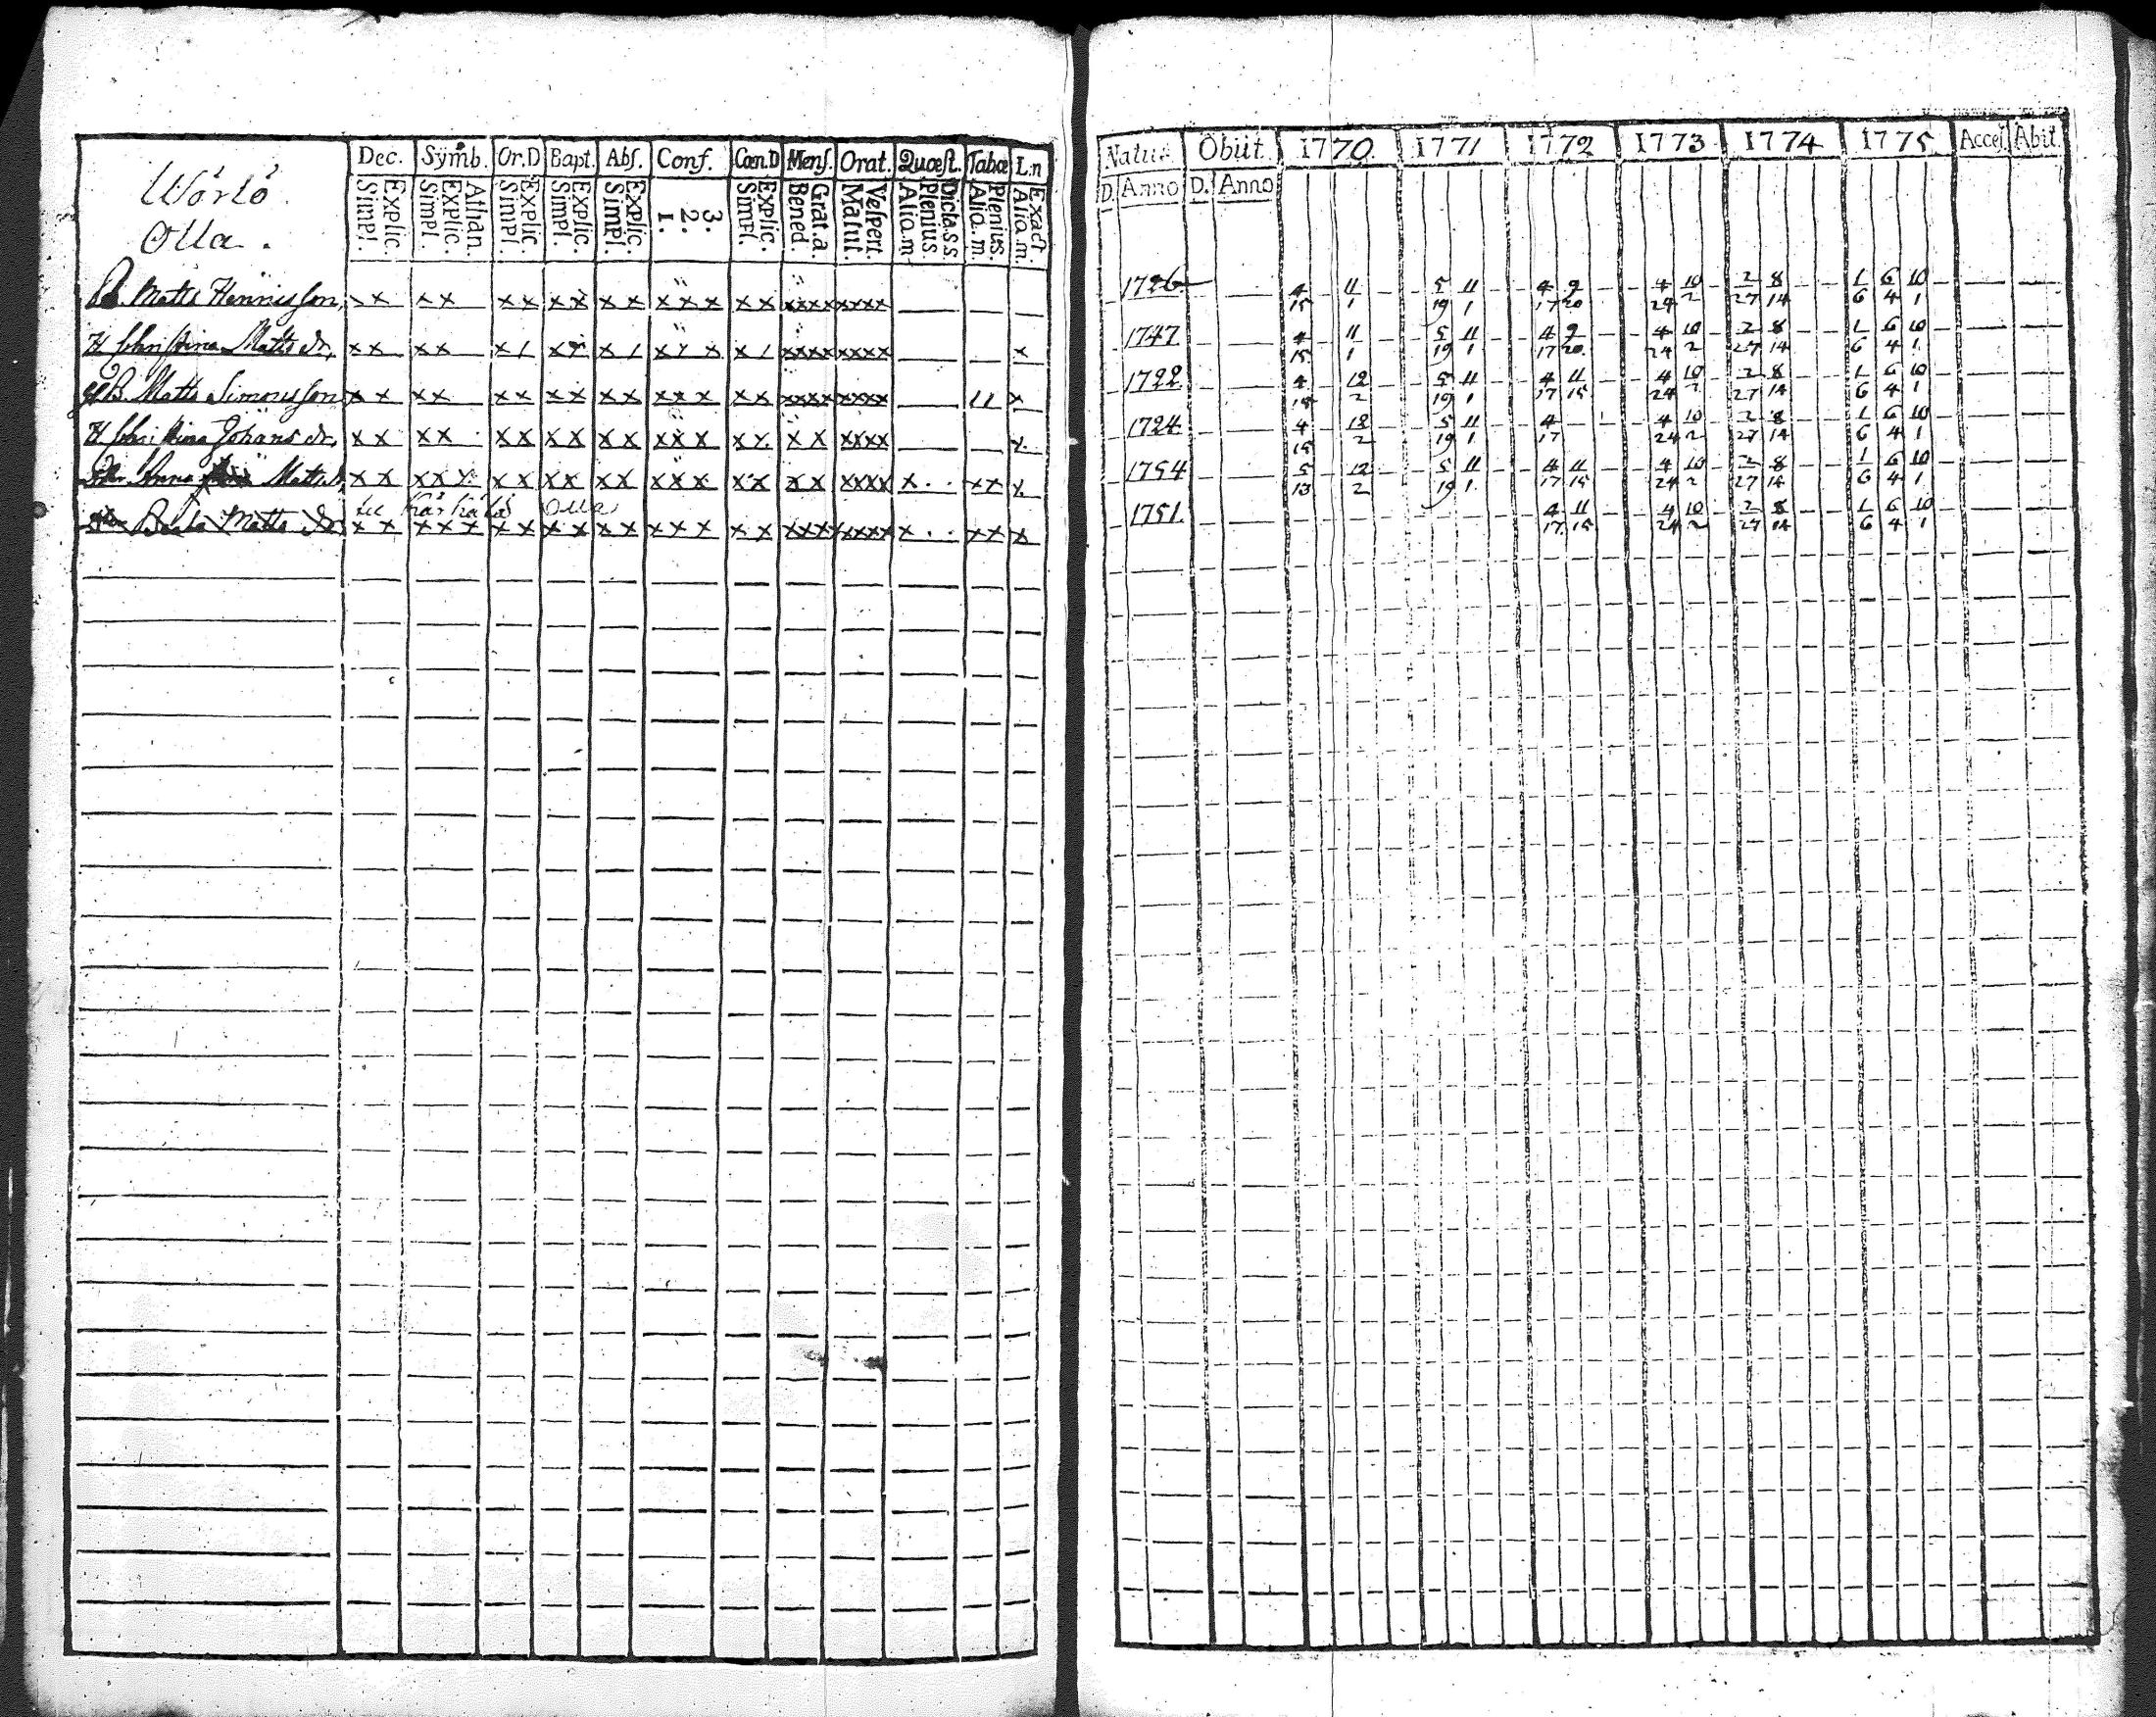 Wörlö
Olla.
Dec. Sÿmb. Or.D Bapt. Abſ. Conf. Cœn.D Menſ. Orat. Quœſt. Tabœ L:n
Explic. Simpl. Athan. Explic. Simpl. Explic. Simpl. Explic. Simpl. Explic. Simpl. 3. 2. 1. Explic. Simpl. Grat.a. Bened. Veſpert. Matut. Dicta.s.s. Plenius. Alio.m Plenius. Alio.m. Exact. Alio.m.
B. Matts Hennisſon, x x x x x x x x x x x x x x x xxxx xxxx
H. Christina Matts dr, x x x x x / x x x / x x x x / xxxx xxxx x
B. Matts Simonsſon x x x x x x x x x x x x x x x xxxx xxxx 11 x
H. Christina Johans dr, x x x x x x x x x x x x x x x x x xxxx x
Anna Matts dr, x x x x x x x x x x x x x x x x x x x xxxx x . . x x x
Olla
Beata Matts dr x x x x x x x x x x x x x x x x xxxx xxxx x . . x x x
Natus Obiit. 1770. 1771 1772 1773 1774 1775 Acceſ. Abit.
D. Anno D. Anno
1726 4 11 5 11 4 9 4 10 2 8 1 6 10
15 1 19 1 17 20 24 2 27 14 6 4 1
1747 4 11 5 11 4 9 4 10 2 8 1 6 10
15 1 19 1 17 20 24 2 27 14 6 4 1
1722 4 12 5 11 4 11 4 10 2 8 1 6 10
15 2 19 1 17 15 24 2 27 14 6 4 1
1724 4 12 5 11 4 4 10 2 8 1 6 10
15 2 19 1 17 24 2 27 14 6 4 1
1754 5 12 5 11 4 11 4 10 2 8 1 6 10
13 2 19 1 17 15 24 2 27 14 6 4 1
1751. 4 11 4 10 2 8 1 6 10
17 15 24 2 27 14 6 4 1